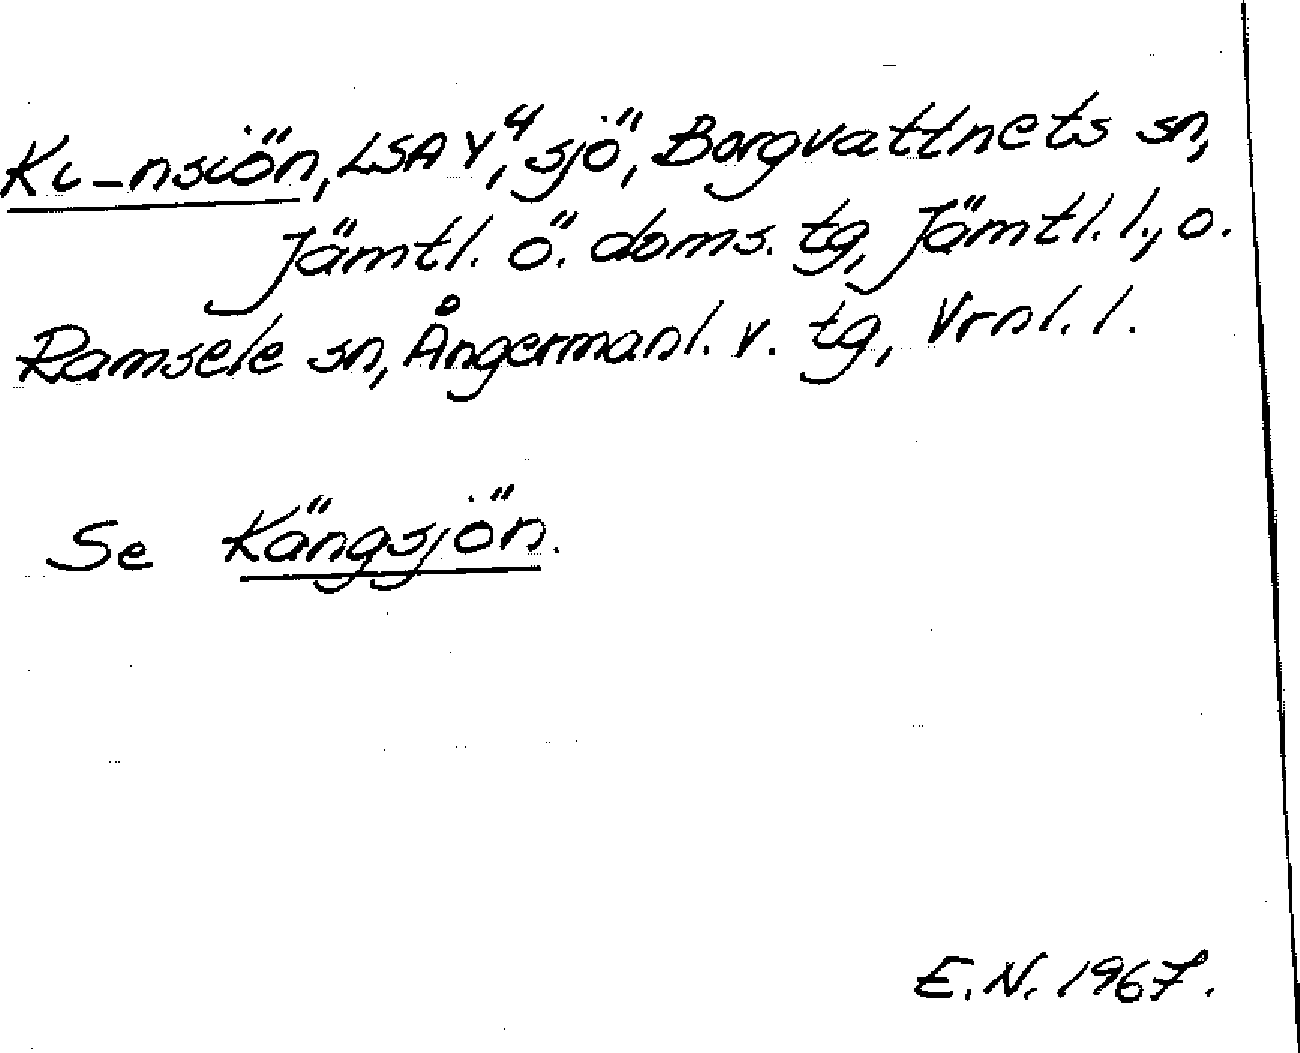 Ki_nsiön, LSA Y4, sjö, Borgvattnets sn,
Jämtl. ö. doms. tg, Jämtl. l., o.
Ramsele sn, Ångermanl. v. tg, Vrnl. l.
Se Kängsjön.
E.N. 1967.